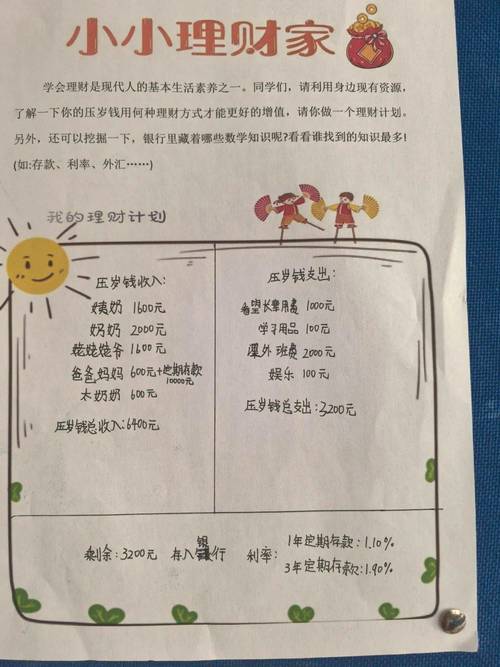 小小理财家
学会理财是现代人的基本生活素养之一。同学们，请利用身边现有资源，
了解一下你的压岁钱用何种理财方式才能更好的增值，请你做一个理财计划。
另外，还可以挖掘一下，银行里藏着哪些数学知识呢?看看谁找到的知识最多!
(如:存款、利率、外汇……)
我的理财计划
压岁钱收入:
姨奶 1600元
奶奶 2000元
姥姥姥爷 1600元
爸爸妈妈 600元+定期存款
10000元
太奶奶 600元
压岁钱总收入:6400元
压岁钱支出:
看望长辈用费 1000元
学习用品 100元
课外班费 2000元
娱乐 100元
压岁钱总支出:3200元
剩余:3200元 存入银行 利率:
1年定期存款:1.10%
3年定期存款:1.90%